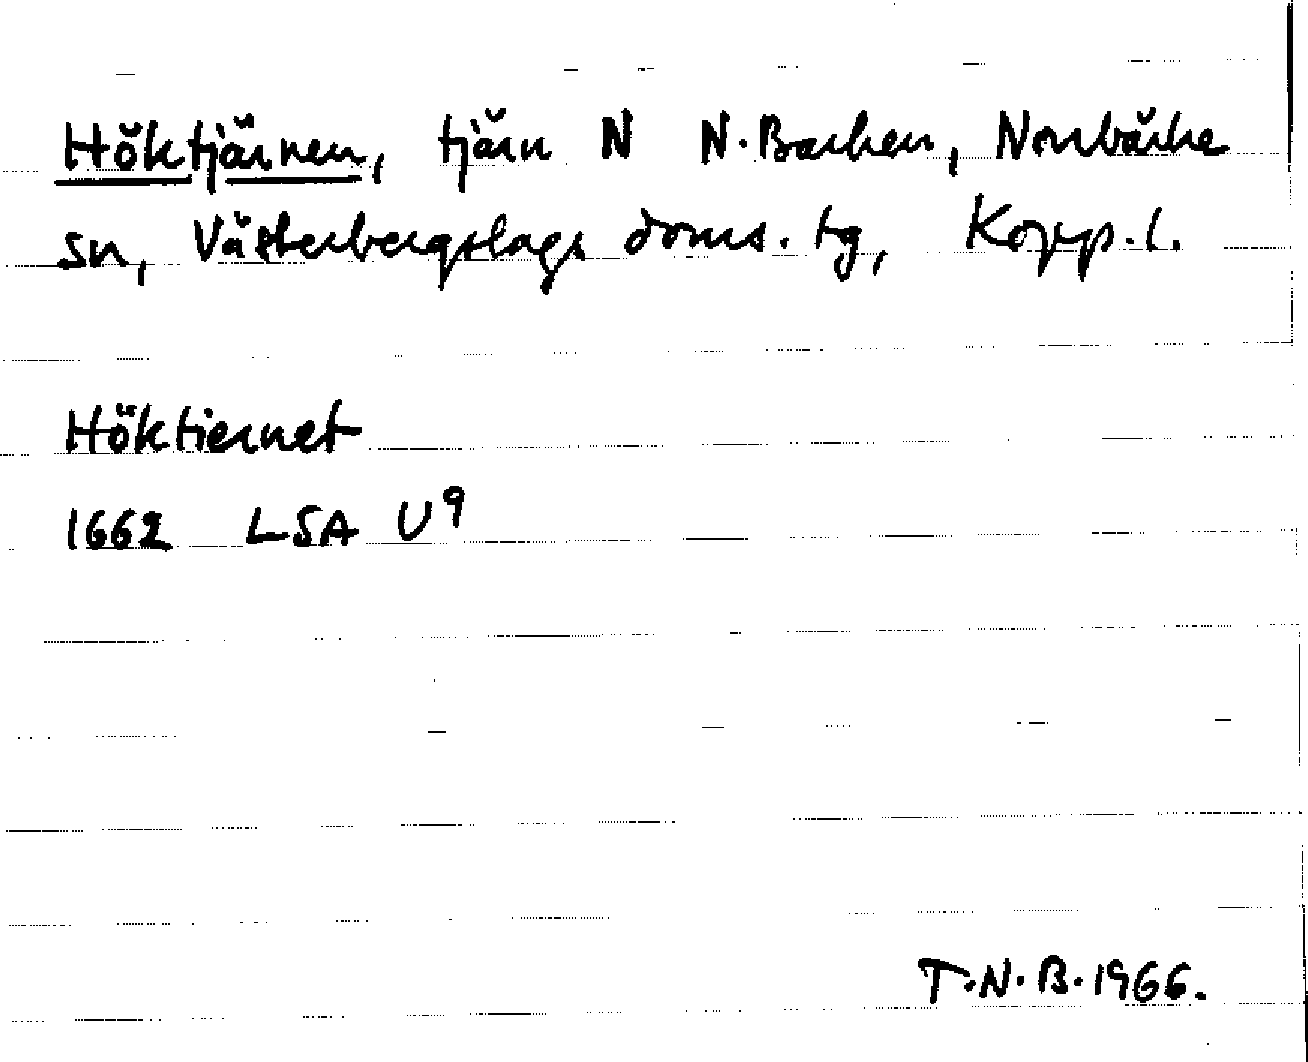 Höktjärnen, tjärn N N. Backen, Norrbärke
sn, Västerbergslags doms. tg, Kopp. l.
Höktiernet
1662 LSA U9
T.N.B. 1966.